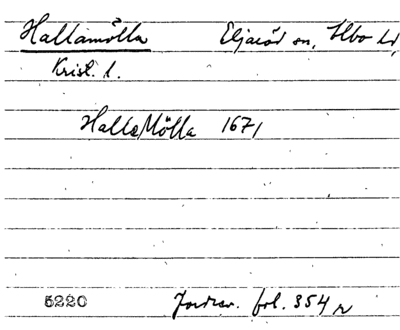 Hallamölla Eljaröd sn, Albo hd,
Krist. l.
HalleMölla 1671
5220 Jordrev. fol. 354 r